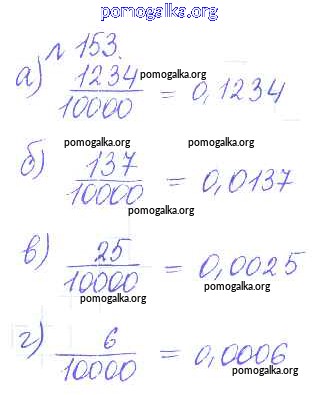 pomogalka.org
№ 153.
а) 1234/10000 = 0,1234
pomogalka.org
pomogalka.org pomogalka.org
б) 137/10000 = 0,0137
pomogalka.org
в) 25/10000 = 0,0025
pomogalka.org pomogalka.org
г) 6/10000 = 0,0006
pomogalka.org